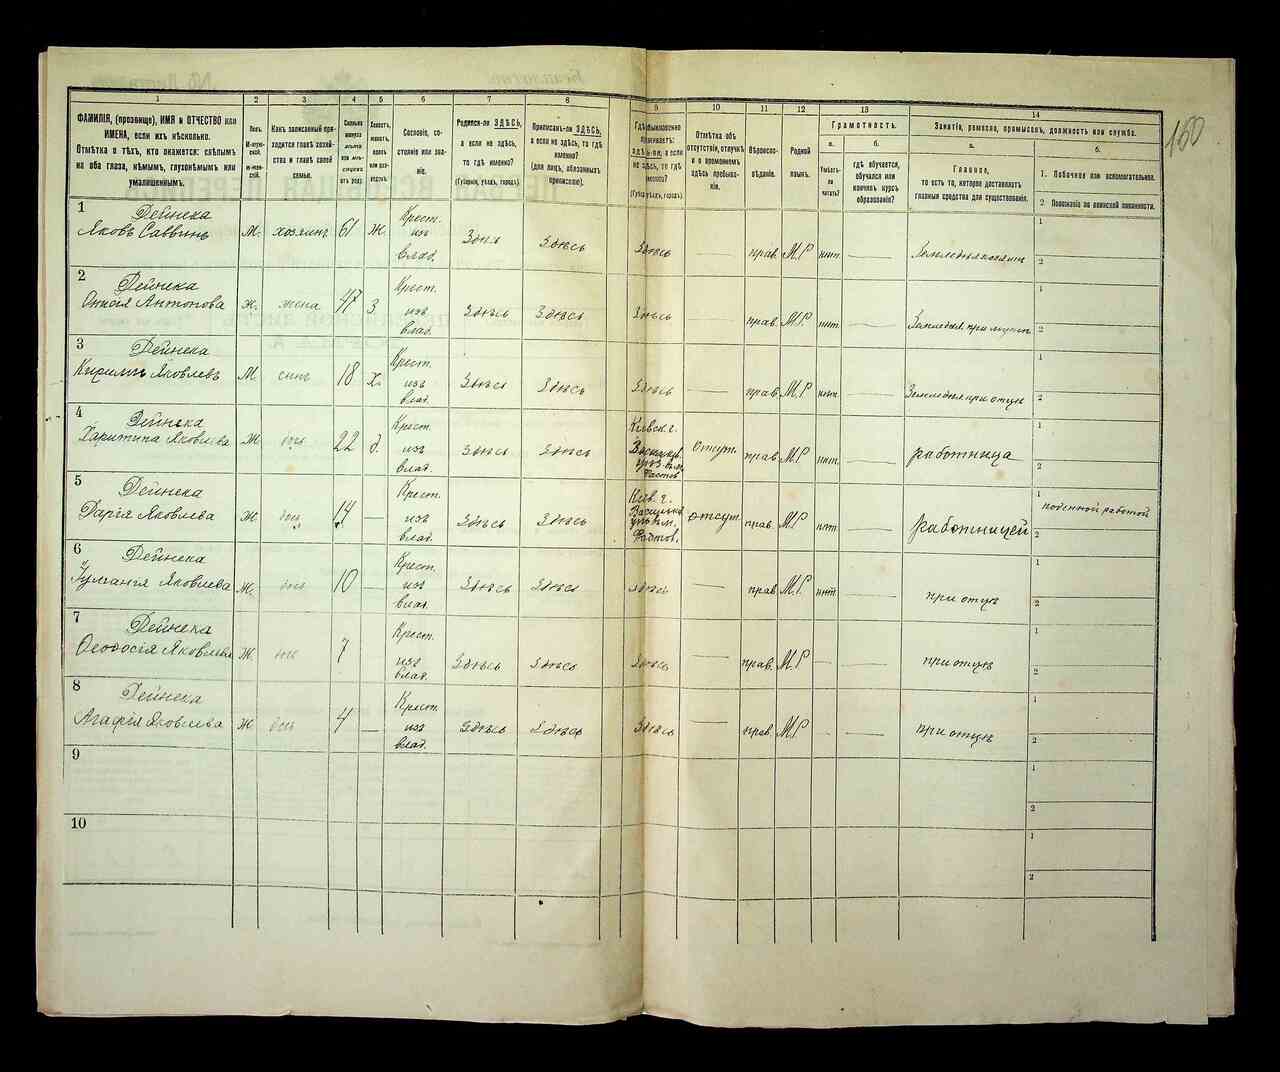 160
1 2 3 4 5 6 7 8 9 10 11 12 13 14
ФАМИЛІЯ, (прозвище), ИМЯ и ОТЧЕСТВО или
ИМЕНА, если ихъ нѣсколько.
Отмѣтка о тѣхъ, кто окажется: слѣпымъ
на оба глаза, нѣмымъ, глухонѣмымъ или
умалишеннымъ.
Полъ.
Какъ записанный при-
ходится главѣ хозяй-
ства и главѣ своей
семьи.
Сословіе, со-
стояніе или зва-
ніе.
Родился-ли ЗДѢСЬ,
а если не здѣсь,
то гдѣ именно?
(Губернія, уѣздъ, городъ).
Приписанъ-ли ЗДѢСЬ,
а если не здѣсь, то гдѣ
именно?
(для лицъ, обязанныхъ
припискою).
Гдѣ обыкновенно
проживаетъ:
здѣсь-ли, а если
не здѣсь, то гдѣ
именно?
(Губернія, уѣздъ, городъ).
Отмѣтка объ
отсутствіи, отлучкѣ
и о временномъ
здѣсь пребыва-
ніи.
Вѣроиспо-
вѣданіе.
Родной
языкъ.
Грамотность.
а. б.
Умѣетъ-
ли
читать?
гдѣ обучается,
обучался или
кончилъ курсъ
образованія?
Занятіе, ремесло, промыселъ, должность или служба.
а. б.
Главное,
то есть то, которое доставляетъ
главныя средства для существованія.
1. Побочное или вспомогательное.
2 Положеніе по воинской повинности.
1 Дейнека
Яковъ Саввинъ М. хозяинъ 61 Ж. Крест. изъ влад. Здѣсь Здѣсь Здѣсь — прав. М.Р. нѣт. —
1
2
2 Дейнека
Антонова ж. жена 47 З Крест. изъ влад. Здѣсь Здѣсь Здѣсь — прав. М.Р. нѣт. —
1
2
3 Дейнека
Яковлевъ М сынъ 18 х. Крест. изъ влад. Здѣсь Здѣсь Здѣсь — прав. М.Р. нѣт. — Земледѣл. при отцѣ
1
2
4 Дейнека
Харитина Яковлева Ж дочь 22 д. Крест. изъ влад. Здѣсь Здѣсь Кіевск. г. отсут. прав. М.Р. нѣт. — работница
1
2
5 Дейнека
Дарія Яковлева Ж дочь 14 Крест. изъ влад. Здѣсь Здѣсь Кіев. г. отсут. прав. М.Р. нѣт — работницей
1 поденной работой
2
6 Дейнека
Яковлева Ж. дочь 10 — Крест. изъ влад. Здѣсь Здѣсь здѣсь — прав. М.Р. нѣт — при отцѣ
1
2
7 Дейнека
Ѳеодосія Яковлева Ж. дочь 7 Крест. изъ влад. Здѣсь Здѣсь Здѣсь — прав. М.Р. — — при отцѣ
1
2
8 Дейнека
Агафія Яковлева Ж дочь 4 — Крест. изъ влад. Здѣсь Здѣсь Здѣсь — прав. М.Р. — — при отцѣ
1
2
9
1
2
10
1
2